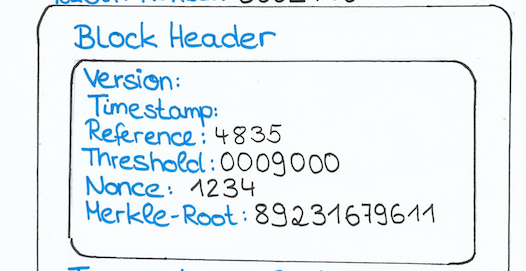 Block Header
Version:
Timestamp:
Reference: 4835
Threshold: 0009000
Nonce: 1234
Merkle-Root: 89231679611